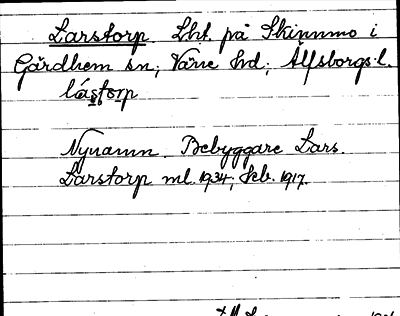 Larstorp. Lht. på Skinnmo i
Gärdhem sn; Väne hd; Älfsborgs l.
låstorp
Nynamn. Bebyggare Lars.
Larstorp ml. 1934; skb. 1917.